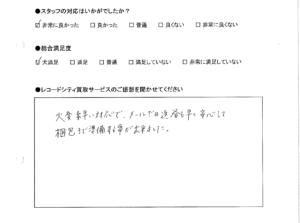 ●スタッフの対応はいかがでしたか？
☑非常に良かった □良かった □普通 □良くない □非常に良くない
●総合満足度
☑大満足 □満足 □普通 □満足していない □非常に満足していない
●レコードシティ買取サービスのご感想を聞かせてください
大変素早い対応で、メールでの返答も早く安心して
梱包まで準備する事が出来ました。